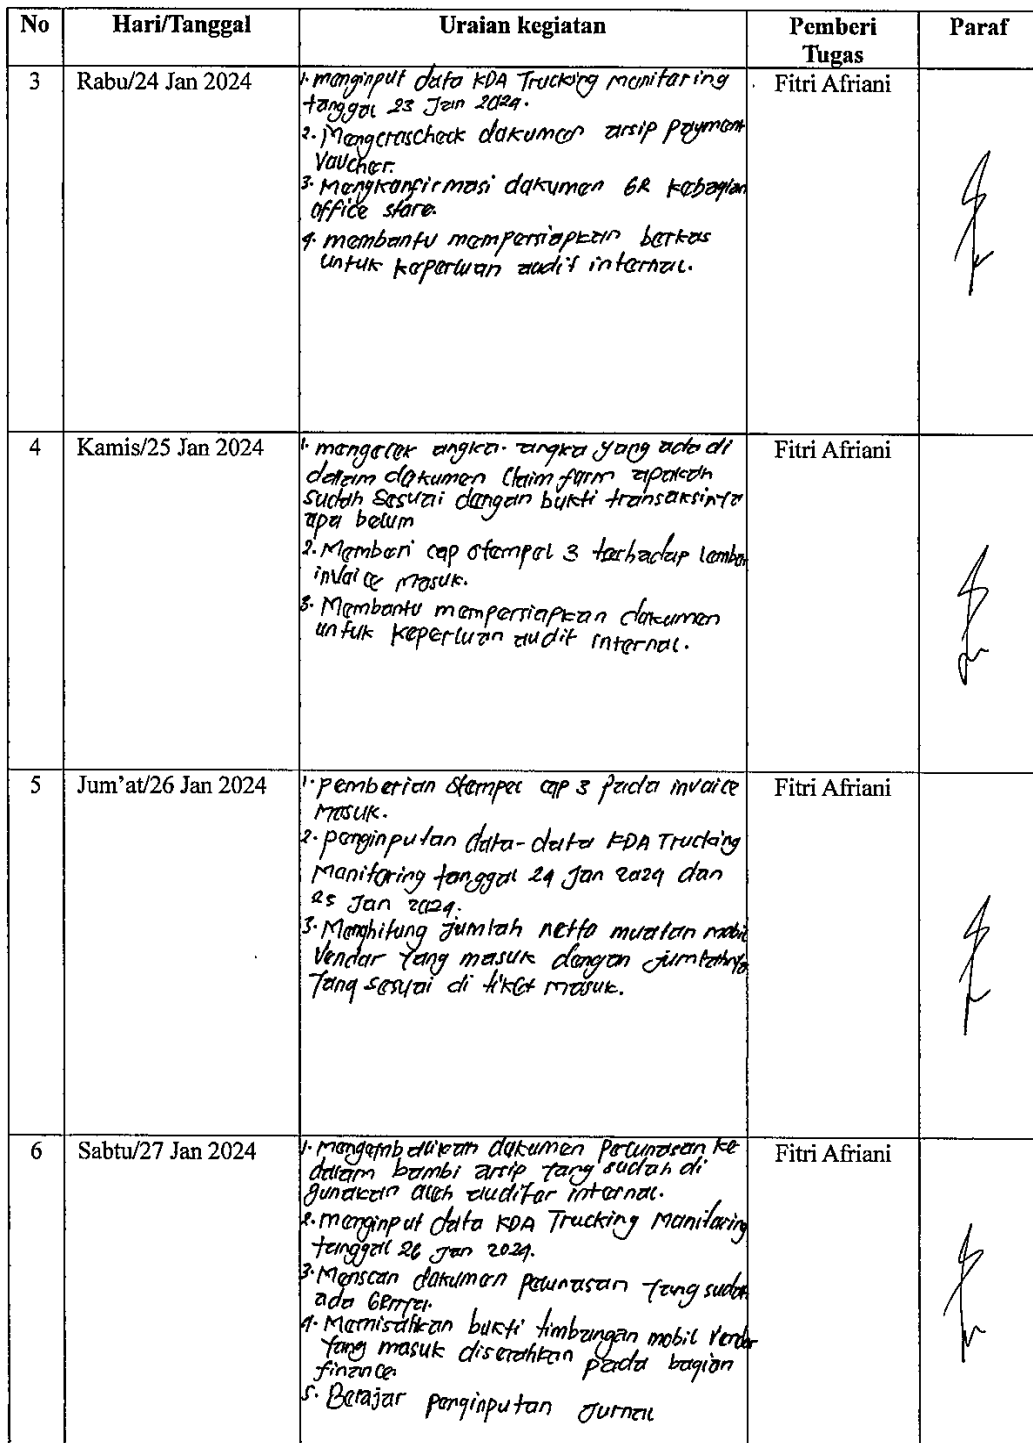 No Hari/Tanggal Uraian kegiatan Pemberi Tugas Paraf
3 Rabu/24 Jan 2024 Fitri Afriani
1. menginput data KDA Trucking monitoring
tanggal 23 Jan 2024.
2. Mengcroscheck dokumen arsip Payment
Voucher.
3. Mengkonfirmasi dokumen GR kebagian
office store.
4. membantu mempersiapkan berkas
untuk keperluan audit internal.
4 Kamis/25 Jan 2024 Fitri Afriani
1. mengecek angka-angka yang ada di
dalam dokumen Claim form apakah
sudah sesuai dengan bukti transaksinya
apa belum
2. Memberi cap stempel 3 terhadap lembar
invoice masuk.
3. Membantu mempersiapkan dokumen
untuk keperluan audit internal.
5 Jum'at/26 Jan 2024 Fitri Afriani
1. pemberian stempel cap 3 pada invoice
masuk.
2. penginputan data-data KDA Trucking
Monitoring tanggal 24 Jan 2024 dan
25 Jan 2024.
3. Menghitung jumlah netto muatan mobil
Vendor yang masuk dengan jumlahnya
yang sesuai di tiket masuk.
6 Sabtu/27 Jan 2024 Fitri Afriani
1. mengembalikan dokumen Pelunasan ke
dalam bambi arsip yang sudah di
gunakan oleh auditor internal.
2. menginput data KDA Trucking Monitoring
tanggal 26 Jan 2024.
3. Menscan dokumen pelunasan yang sudah
ada GRnya.
4. Memisahkan bukti timbangan mobil Vendor
yang masuk diserahkan pada bagian
finance.
5. Belajar penginputan Jurnal